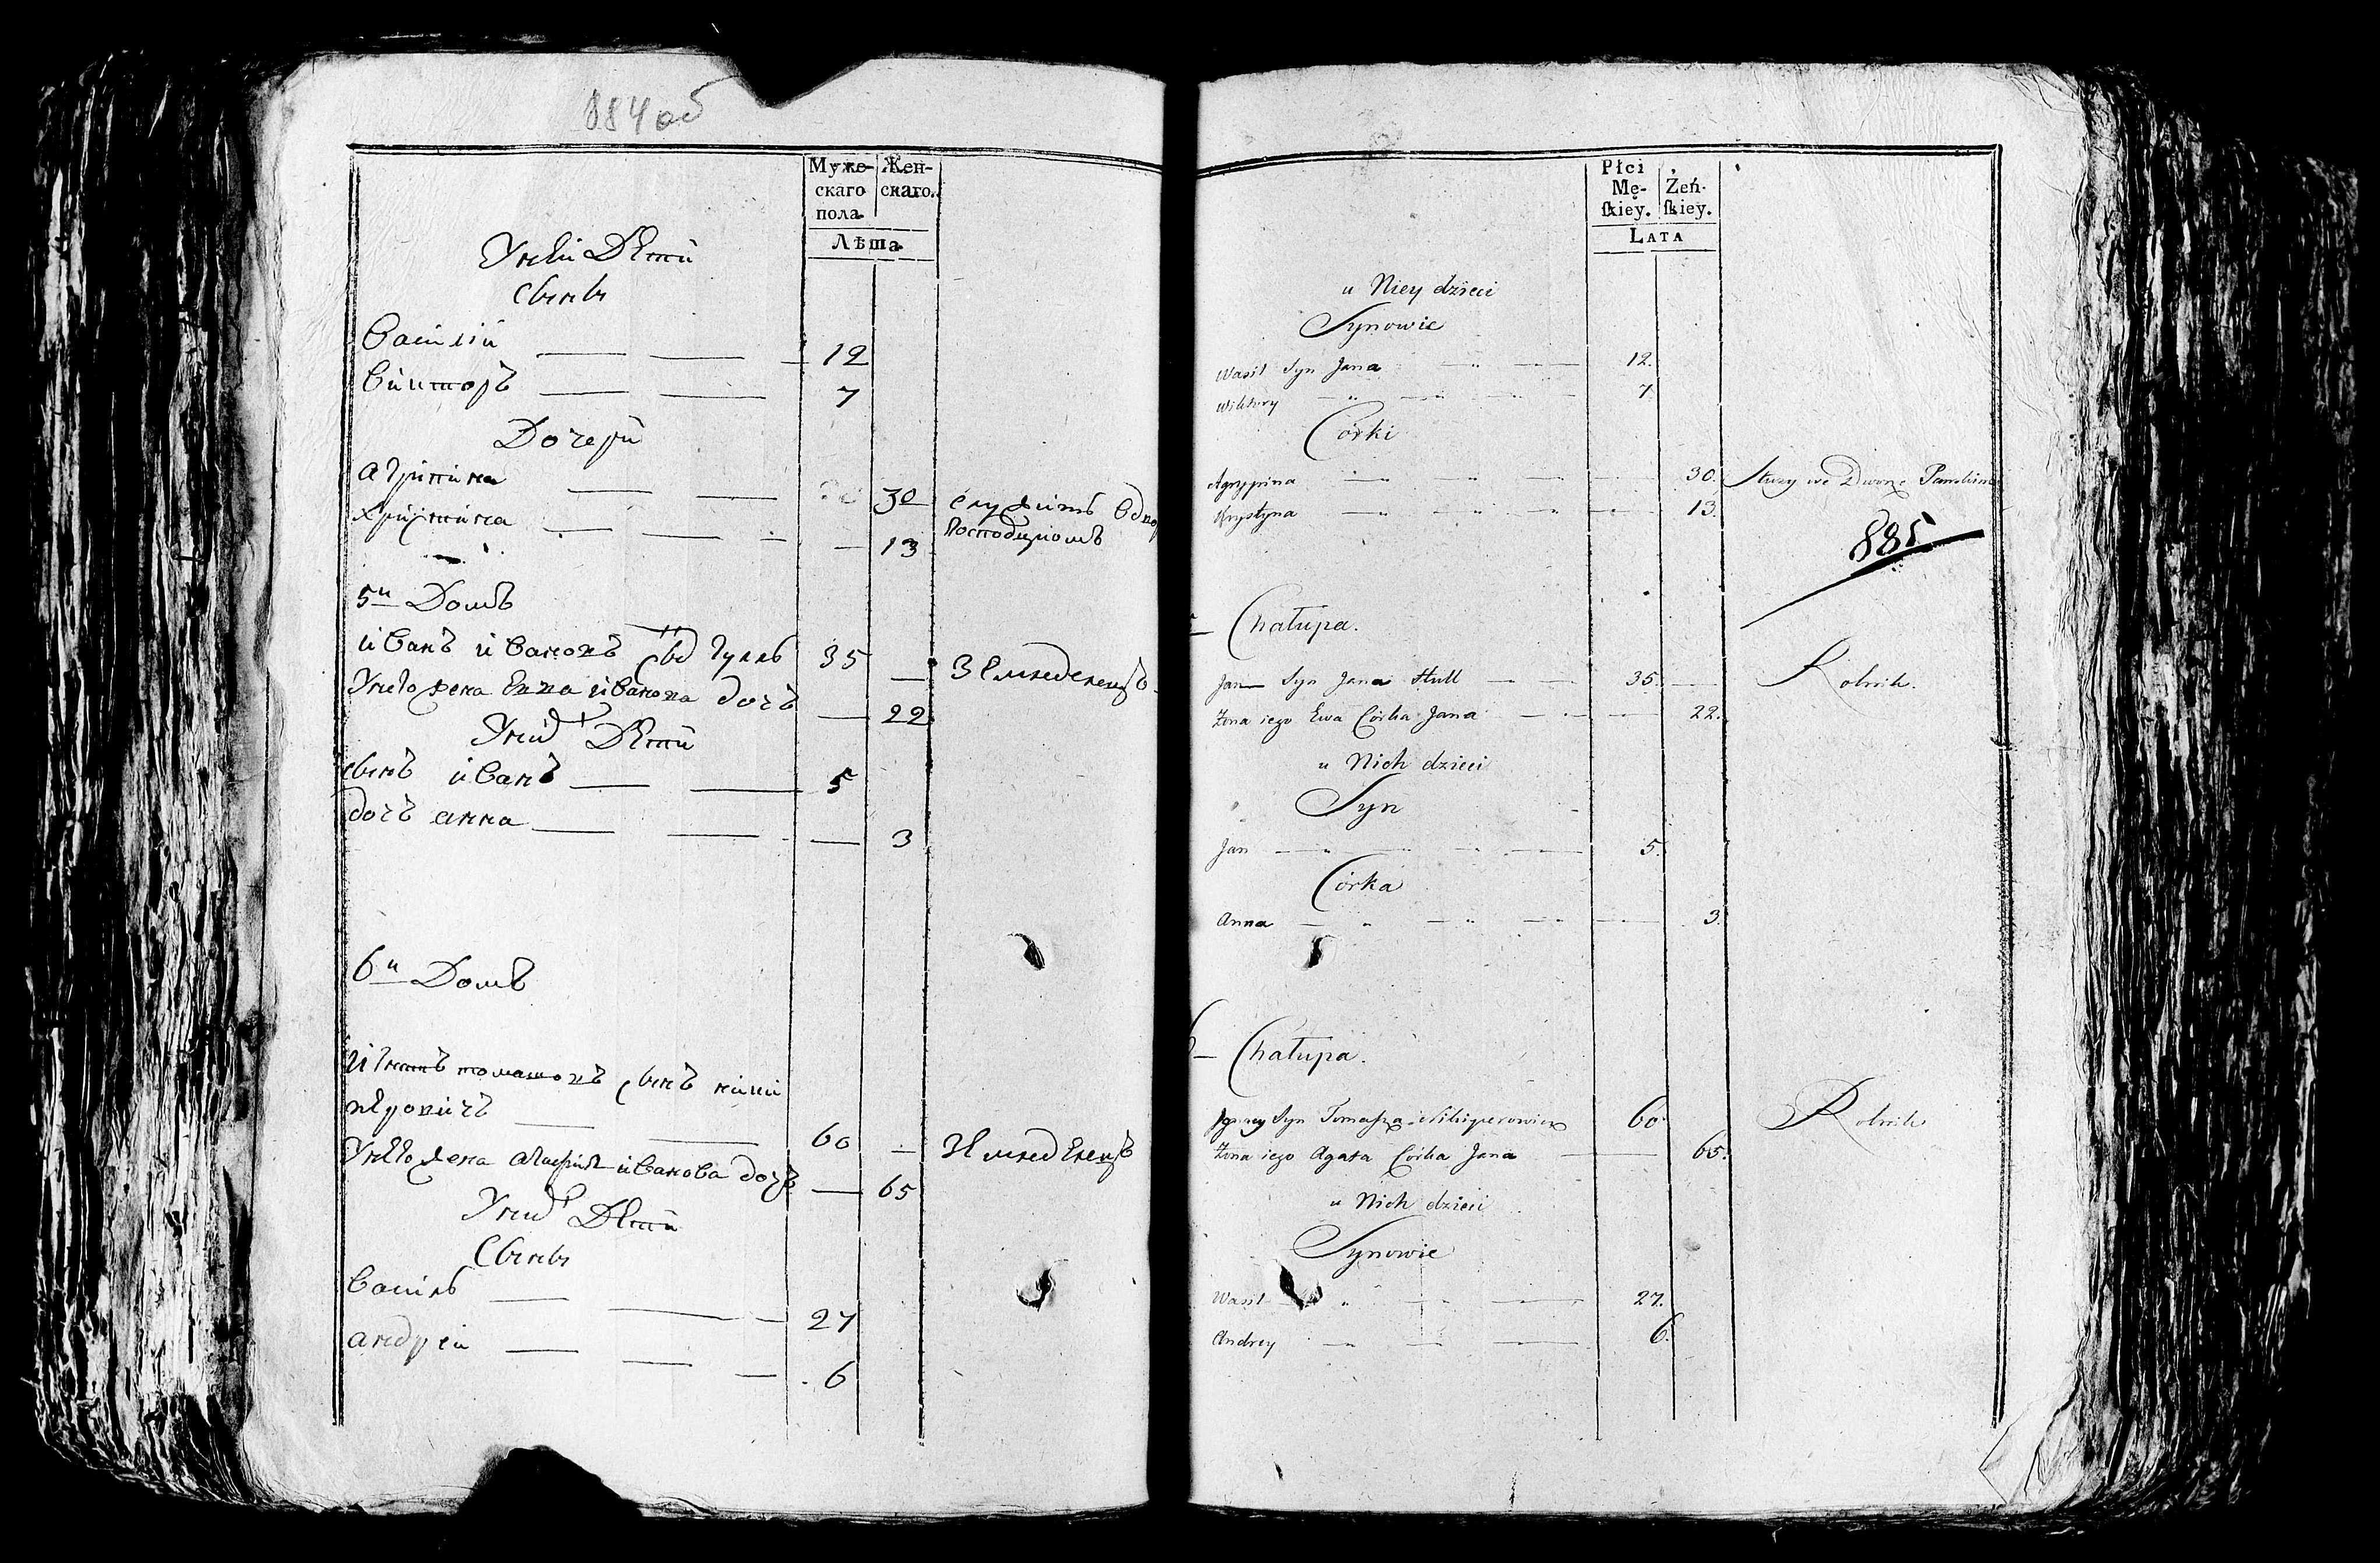 884 об
Муже- Жен-
скаго скаго.
пола
Лѣта
Унеи Дети
Сыны
Василій — — — 12
Викторъ — — 7
Дочери
Агрипина — — 30 служитъ
Христина — — — 13 Господскомъ
5й Домъ
иванъ ивановъ сынъ Гулль 35 — Земледелецъ
Унего жена Евва иванова дочъ — 22
Унихъ Дети
сынъ иванъ — — 5
дочъ анна — — — 3
6й Домъ
Игнатъ томашовъ сынъ ники
перовичъ — — 60 — Земледелецъ
Унего жена иванова дочъ — 65
Унихъ Дети
Сыны
Василь — — — 27
андрей — — — 6
Płci
Mę- Żeń-
ſkiey. ſkiey.
LATA
u Niey dzieci
Synowie
Wasil Syn Jana — — 12.
Wiktory — — — 7
Córki
Agryppina — — — 30. Służy we Dworze Pańskim
Krystyna — — — 13.
885
Chałupa.
Jan Syn Jana Hull — — 35. — Rolnik.
Żona iego Ewa Córka Jana — — — 22.
u Nich dzieci
Syn
Jan — — — 5.
Córka
Anna — — — 3.
6 — Chałupa.
Ignacy Syn Tomasza Nikiperowicz 60. Rolnik
Żona iego Agata Córka Jana — 65.
u Nich dzieci
Synowie
Wasil — — — 27.
Andrey — — — 6.